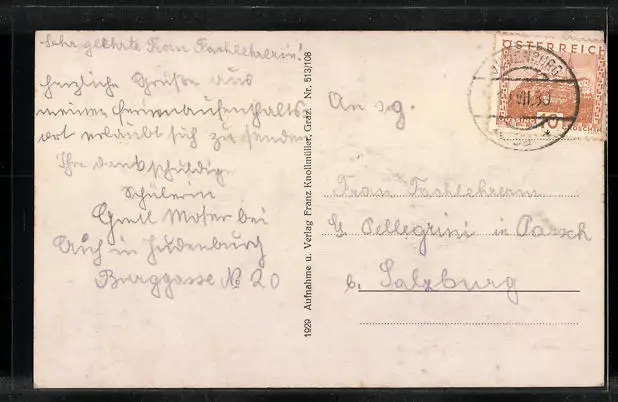 Sehr geehrte Frau Fachlehrerin!
herzliche Grüße aus
meinem Ferienaufenthalts
ort erlaubt sich zu senden
Ihre dankschuldige
Schülerin
Gretl Moser bei
in Judenburg
Burggasse № 20
1929 Aufnahme u. Verlag Franz Knollmüller, Graz. Nr. 513/108
An s.g.
Frau Fachlehrerin
G. Pellegrini in Parsch
b. Salzburg
ÖSTERREICH
JUDENBURG
VII.30
10
GROSCHEN